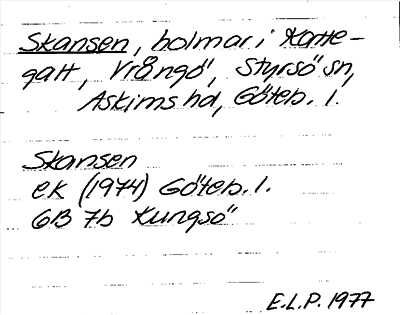 Skansen, holmar i Katte-
gatt, Vrångö, Styrsö sn,
Askims hd, Göteb. l.
Skansen
ek (1974) Göteb. l.
6B 7b Kungsö
E.L.P. 1977